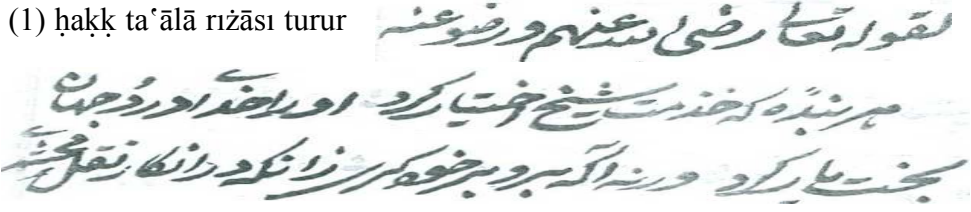 (1) ḥaḳḳ taʿālā rıżāsı turur لقوله تعالى رضى الله عنهم ورضو عنه
هر بنده که خدمت شیخ اختیار کرد او را خدا در دو جهان
بخت یار کرد ورنه زانکه در انکار نقل